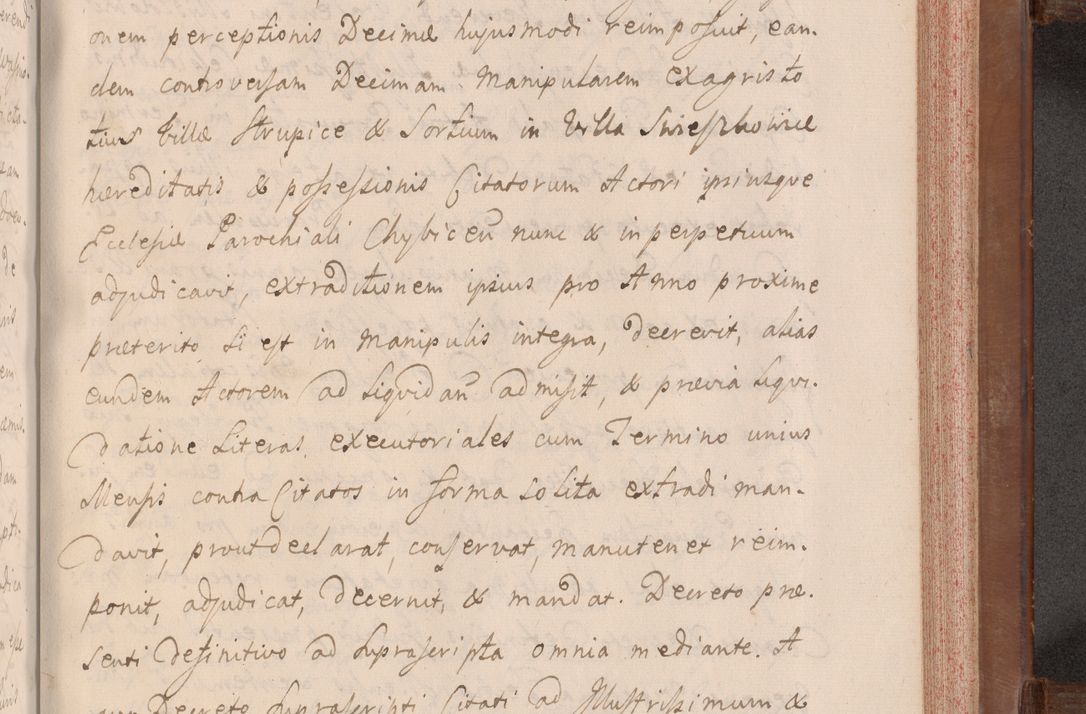 onem perceptionis Decimæ hujusmodi reimposuit, ean-
dem controversam Decimam Manipularem ex agris to
tius Villæ Strupice & Sortium in Villa Swieszkowicæ
hæreditatis & possessionis Citatorum Actori ipsiusque
Ecclesiæ Parochiali Chybiceñ nunc & in perpetuum
adjudicavit, extraditionem ipsius pro Anno proxime
præterito si est in Manipulis integra, decrevit, alias
eundem Actorem ad liquidañ admisit, & prævia liqui-
datione Literas executoriales cum Termino unius
Mensis contra Citatos in forma solita extradi man-
davit, prout declarat, conservat, manutenet reim-
ponit, adjudicat, decernit, & mandat. Decreto præ-
senti definitivo ad suprascripta omnia mediante. A
quo Decreto suprascripti Citati ad Illustrissimum &